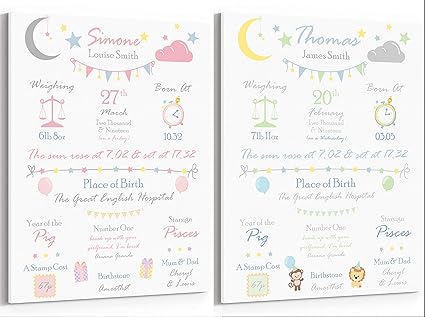 Simone
Louise Smith
Weighing
27th
Born At
March
Two Thousand
& Nineteen
(on a Friday!)
6lb 8oz
10.32
The sun rose at 7.02 & set at 17.32
Place of Birth
The Great English Hospital
Year of the
Pig
Number One
break up with your
girlfriend, I'm bored
Ariana Grande
Starsign
Pisces
A Stamp Cost
67p
Birthstone
Amethyst
Mum & Dad
Cheryl
& Lewis
Thomas
James Smith
Weighing
20th
Born At
February
Two Thousand
& Nineteen
(on a Wednesday!)
7lb 11oz
03.05
The sun rose at 7.02 & set at 17.32
Place of Birth
The Great English Hospital
Year of the
Pig
Number One
break up with your
girlfriend, I'm bored
Ariana Grande
Starsign
Pisces
A Stamp Cost
67p
Birthstone
Amethyst
Mum & Dad
Cheryl
& Lewis